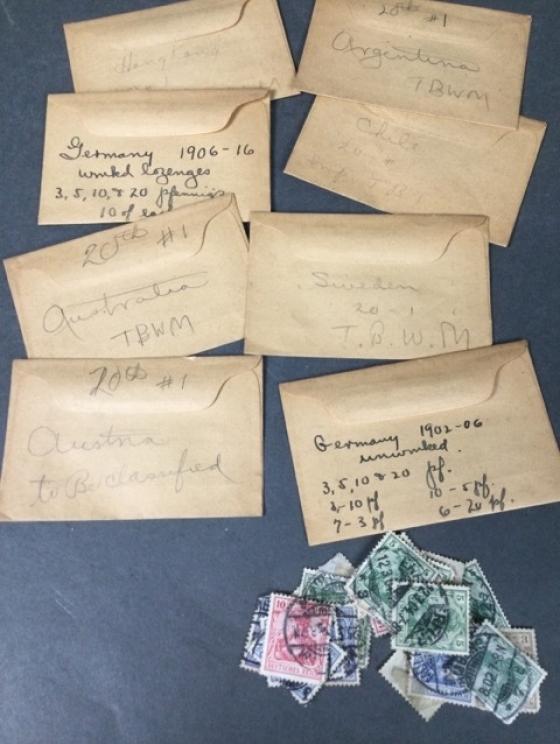 Hong Kong
20th #1
Argentina
TBWM
Germany 1906-16
wmkd lozenges
3, 5, 10, & 20 pfennigs
10 of each
Chile
20 #
20th #1
Australia
TBWM
Sweden
20 - 1
T. B. W. M
20th #1
Austria
to Be classified
Germany 1902-06
unwmked.
3, 5, 10 & 20 pf.
10 pf 10 - 5 pf.
7 - 3 pf 6 - 20 pf.
10
5
5
DEUTSCHES REICH